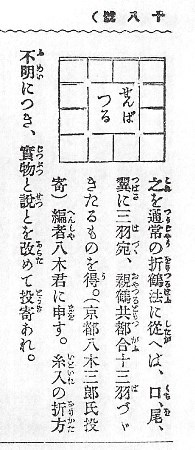 十八號）
せんば
つる
之を通常の折鶴法に從へば、口、尾、
翼に三羽宛、親鶴共都合十三羽づゝ
きたるものを得。（京都八木三郎氏投
寄）編者八木君に申す。糸入の折方
不明につき、實物と説とを改めて投寄あれ。